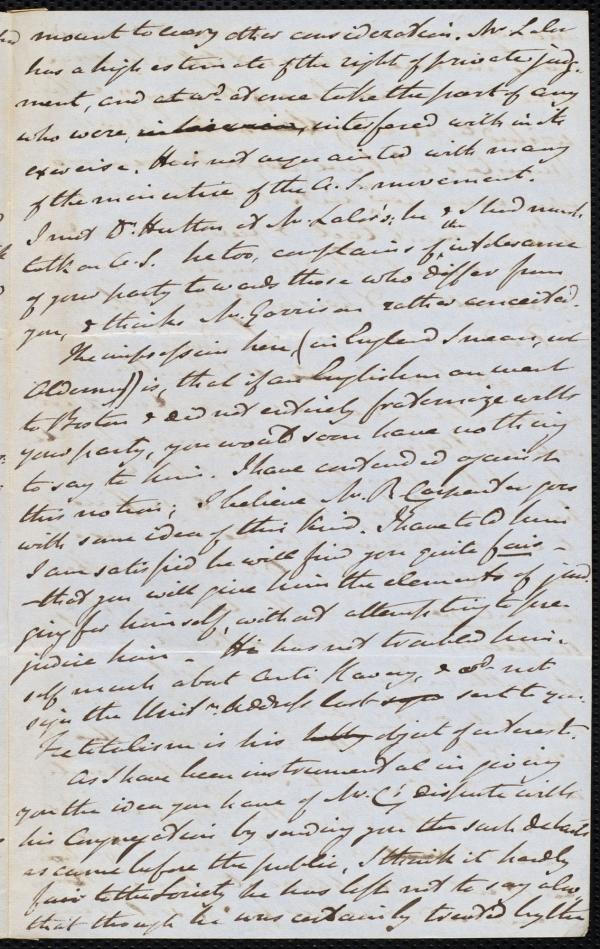 mount to every other consideration. Mr Lalor
has a high estimate of the right of private judg-
ment, and at wd. at once take the part of any
who were, interfered with in its
exercise. He is not acquainted with many
of the minutiae of the A. S. movement.
I met Dr. Hutton at Mr. Lalor's; he & I had much
talk on A. S. he too, complains of the intolerance
of your party towards those who differ from
you, & thinks Mr. Garrison rather conceited.
The impression here, (in England I mean, not
) is, that if an Englishman went
to Boston & did not entirely fraternize with
your party, you would soon have nothing
to say to him. I have contended against
this notion; I believe Mr. R. Carpenter goes
with some idea of this kind. I have told him
I am satisfied he will find you quite fair -
- that you will give him the elements of jud
ging for himself, without attempting to pre-
judice him - He has not troubled him-
self much about Anti Slavery, & wd. not
sign the Unitn. Address last sent to you.
Teetotalism is his object of interest.
As I have been instrumental in giving
you the idea you have of Mr. C's dispute with
his Congregation by sending you the such details
as came before the public, I think it hardly
fair to the Society he has left not to say also,
that though he was certainly treated by the